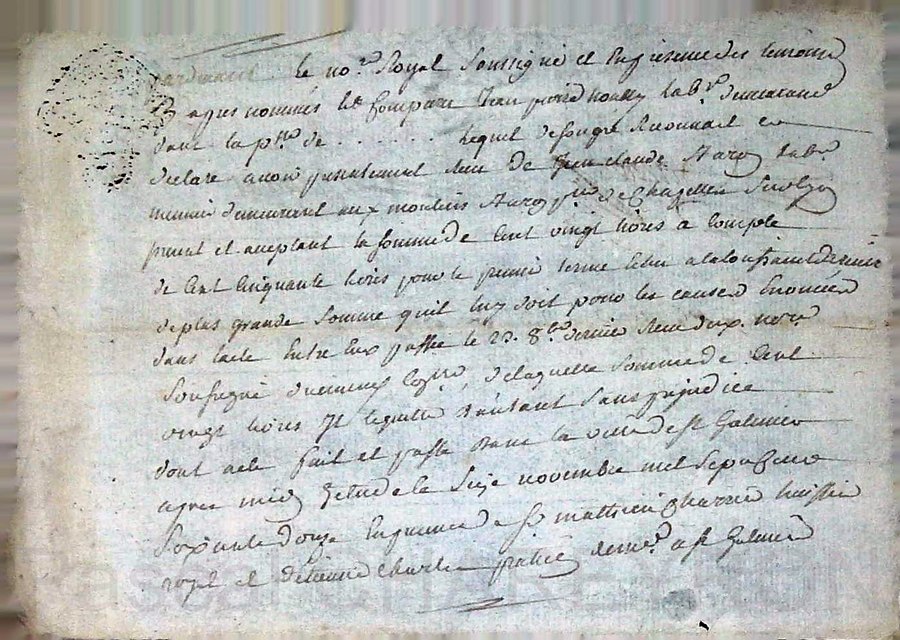 pardevant le no.re Royal soussigné et en presence des temoins
cy apres nommés est comparu Jean pierre lab.r demeurant
dans la p.sse de . . . . . . . lequel de son gre reconnait et
declare avoir presentement reçu de Jean claude lab.r
meunier demeurant aux moulins p.sse de Chazelles
presant et acceptant la somme de cent vingt livres a compte
de cent cinquante livres pour le premier terme echu a la toussaint derniere
de plus grande somme qu'il luy doit pour les causes enoncées
dans l'acte entre eux passée le 22. 8.bre dernier recu d'ux. no.re
soussigné de laquelle somme de cent
vingt livres Il le quitte d'autant sans prejudice
dont acte fait et passé dans la ville de st Galmier
apres midy Etude le seize novembre mil sept cent
soixante douze En presence de sr matthieu huissier
royal et d'etienne Charles praticien demt a st Galmier